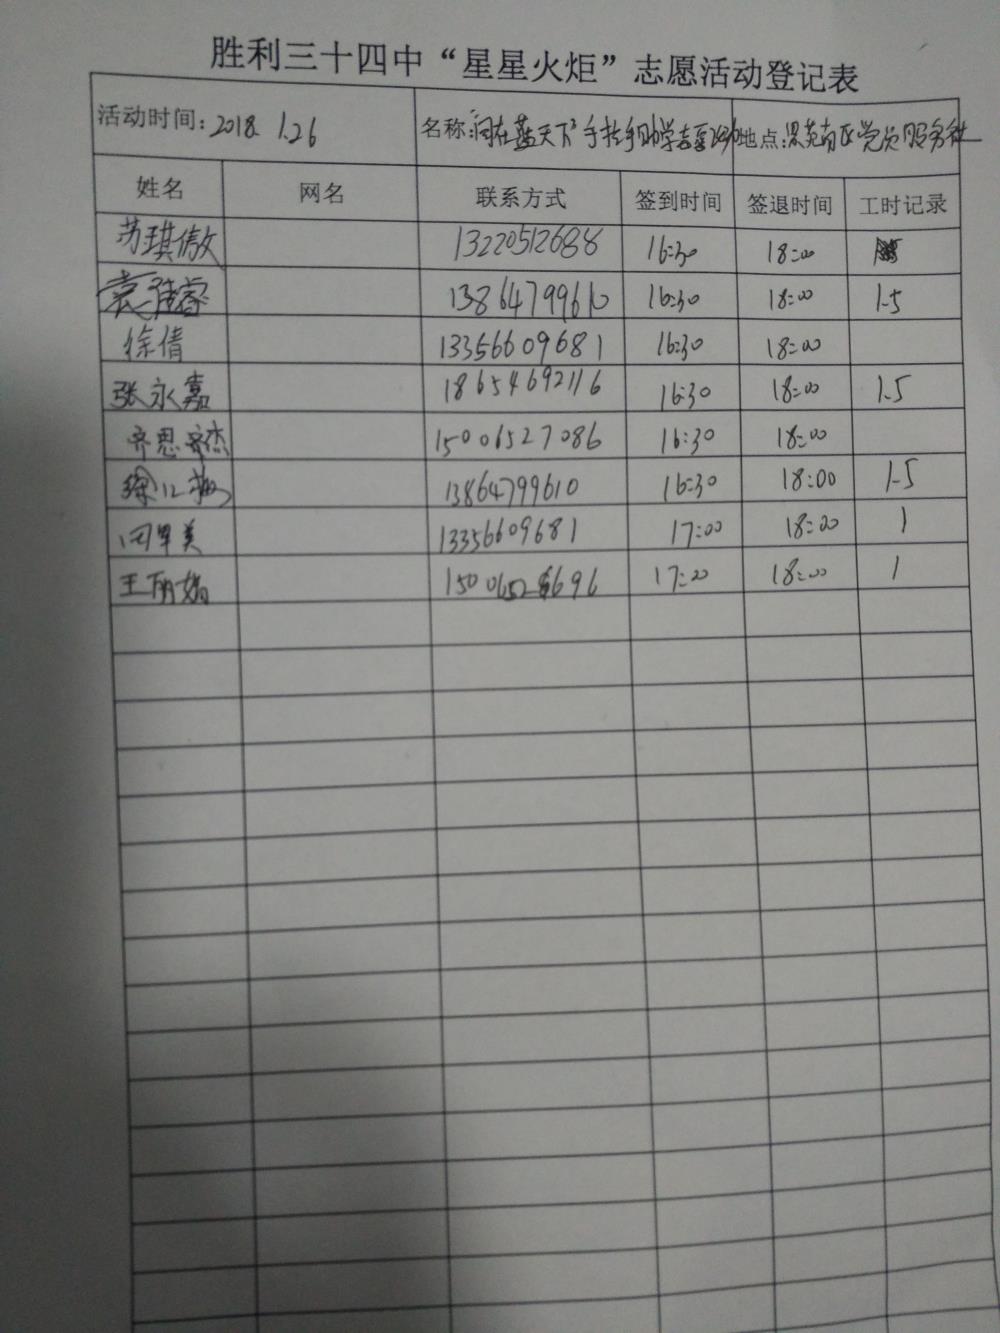 胜利三十四中“星星火炬”志愿活动登记表
活动时间：2018.1.26 名称：同在蓝天下手拉手助学 地点：南区党员服务
姓名 网名 联系方式 签到时间 签退时间 工时记录
苏琪傲 13220512688 16:30 18:00
袁睿 13864799610 16:30 18:00 1.5
徐倩 13356609681 16:30 18:00
张永嘉 18654692116 16:30 18:00 1.5
齐思杰 15006527086 16:30 18:00
13864799610 16:30 18:00 1.5
美 13356609681 17:00 18:00 1
王丽娟 17:00 18:00 1